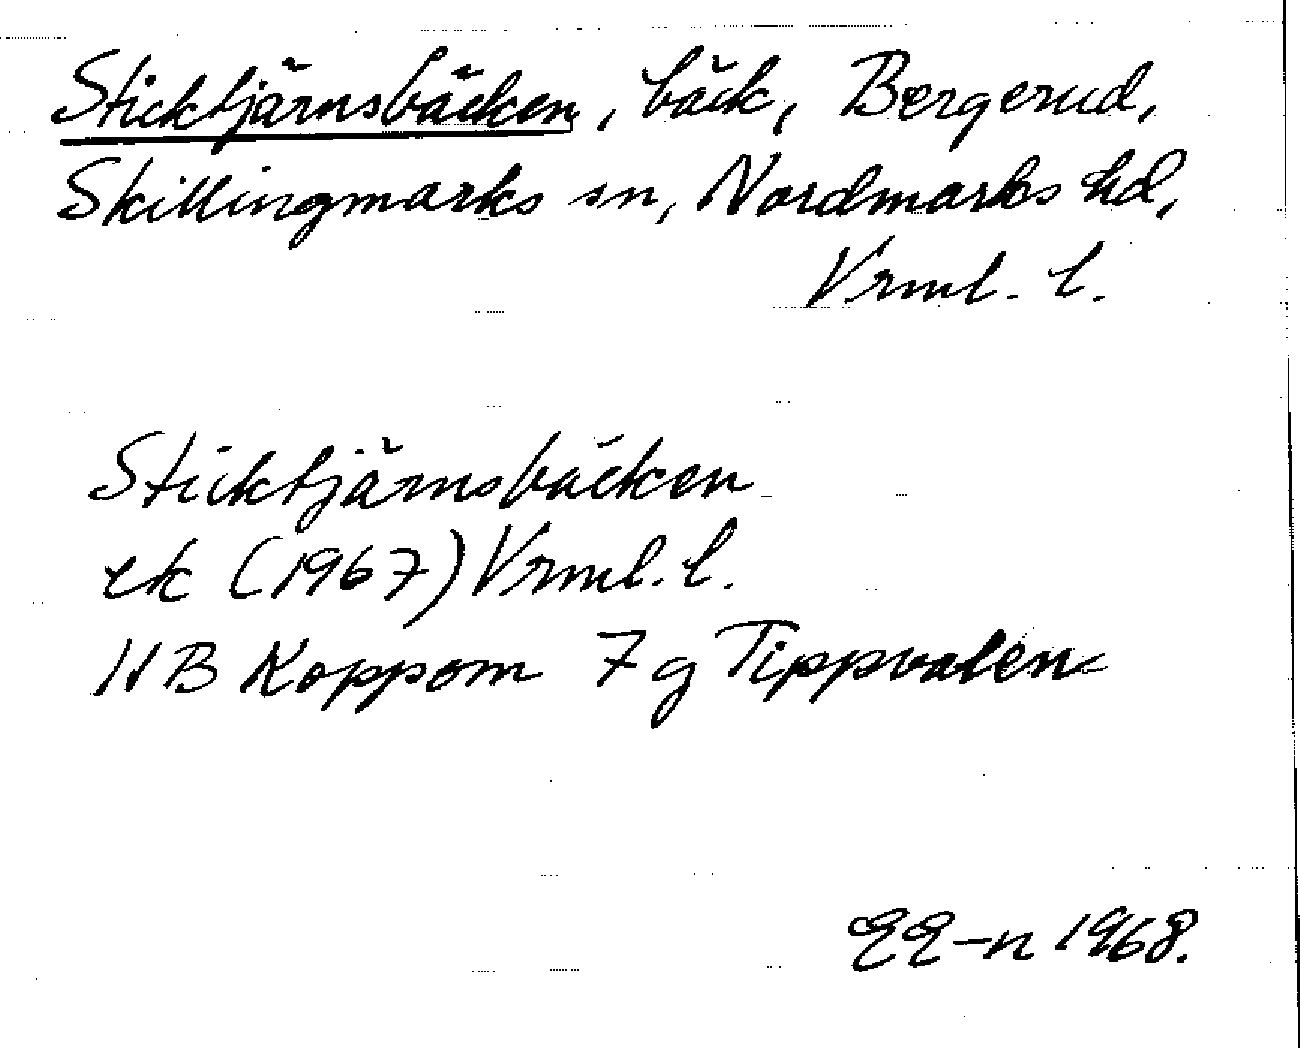 Sticktjärnsbäcken, bäck, Bergerud,
Skillingmarks sn, Nordmarks hd,
Vrml. l.
Sticktjärnsbäcken
ek (1967) Vrml. l.
11B Koppom 7g Tippvalen
EE-n 1968.